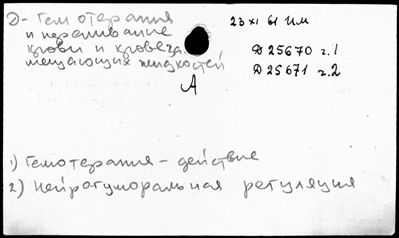 Д - Гемотерапия
и переливание
крови и кровеза
мещающих жидкостей
А
23 XI 61 ИМ
Д 25670 г.1
Д 25671 г.2
1) Гемотерапия - действие
2) Нейрогуморальная регуляция